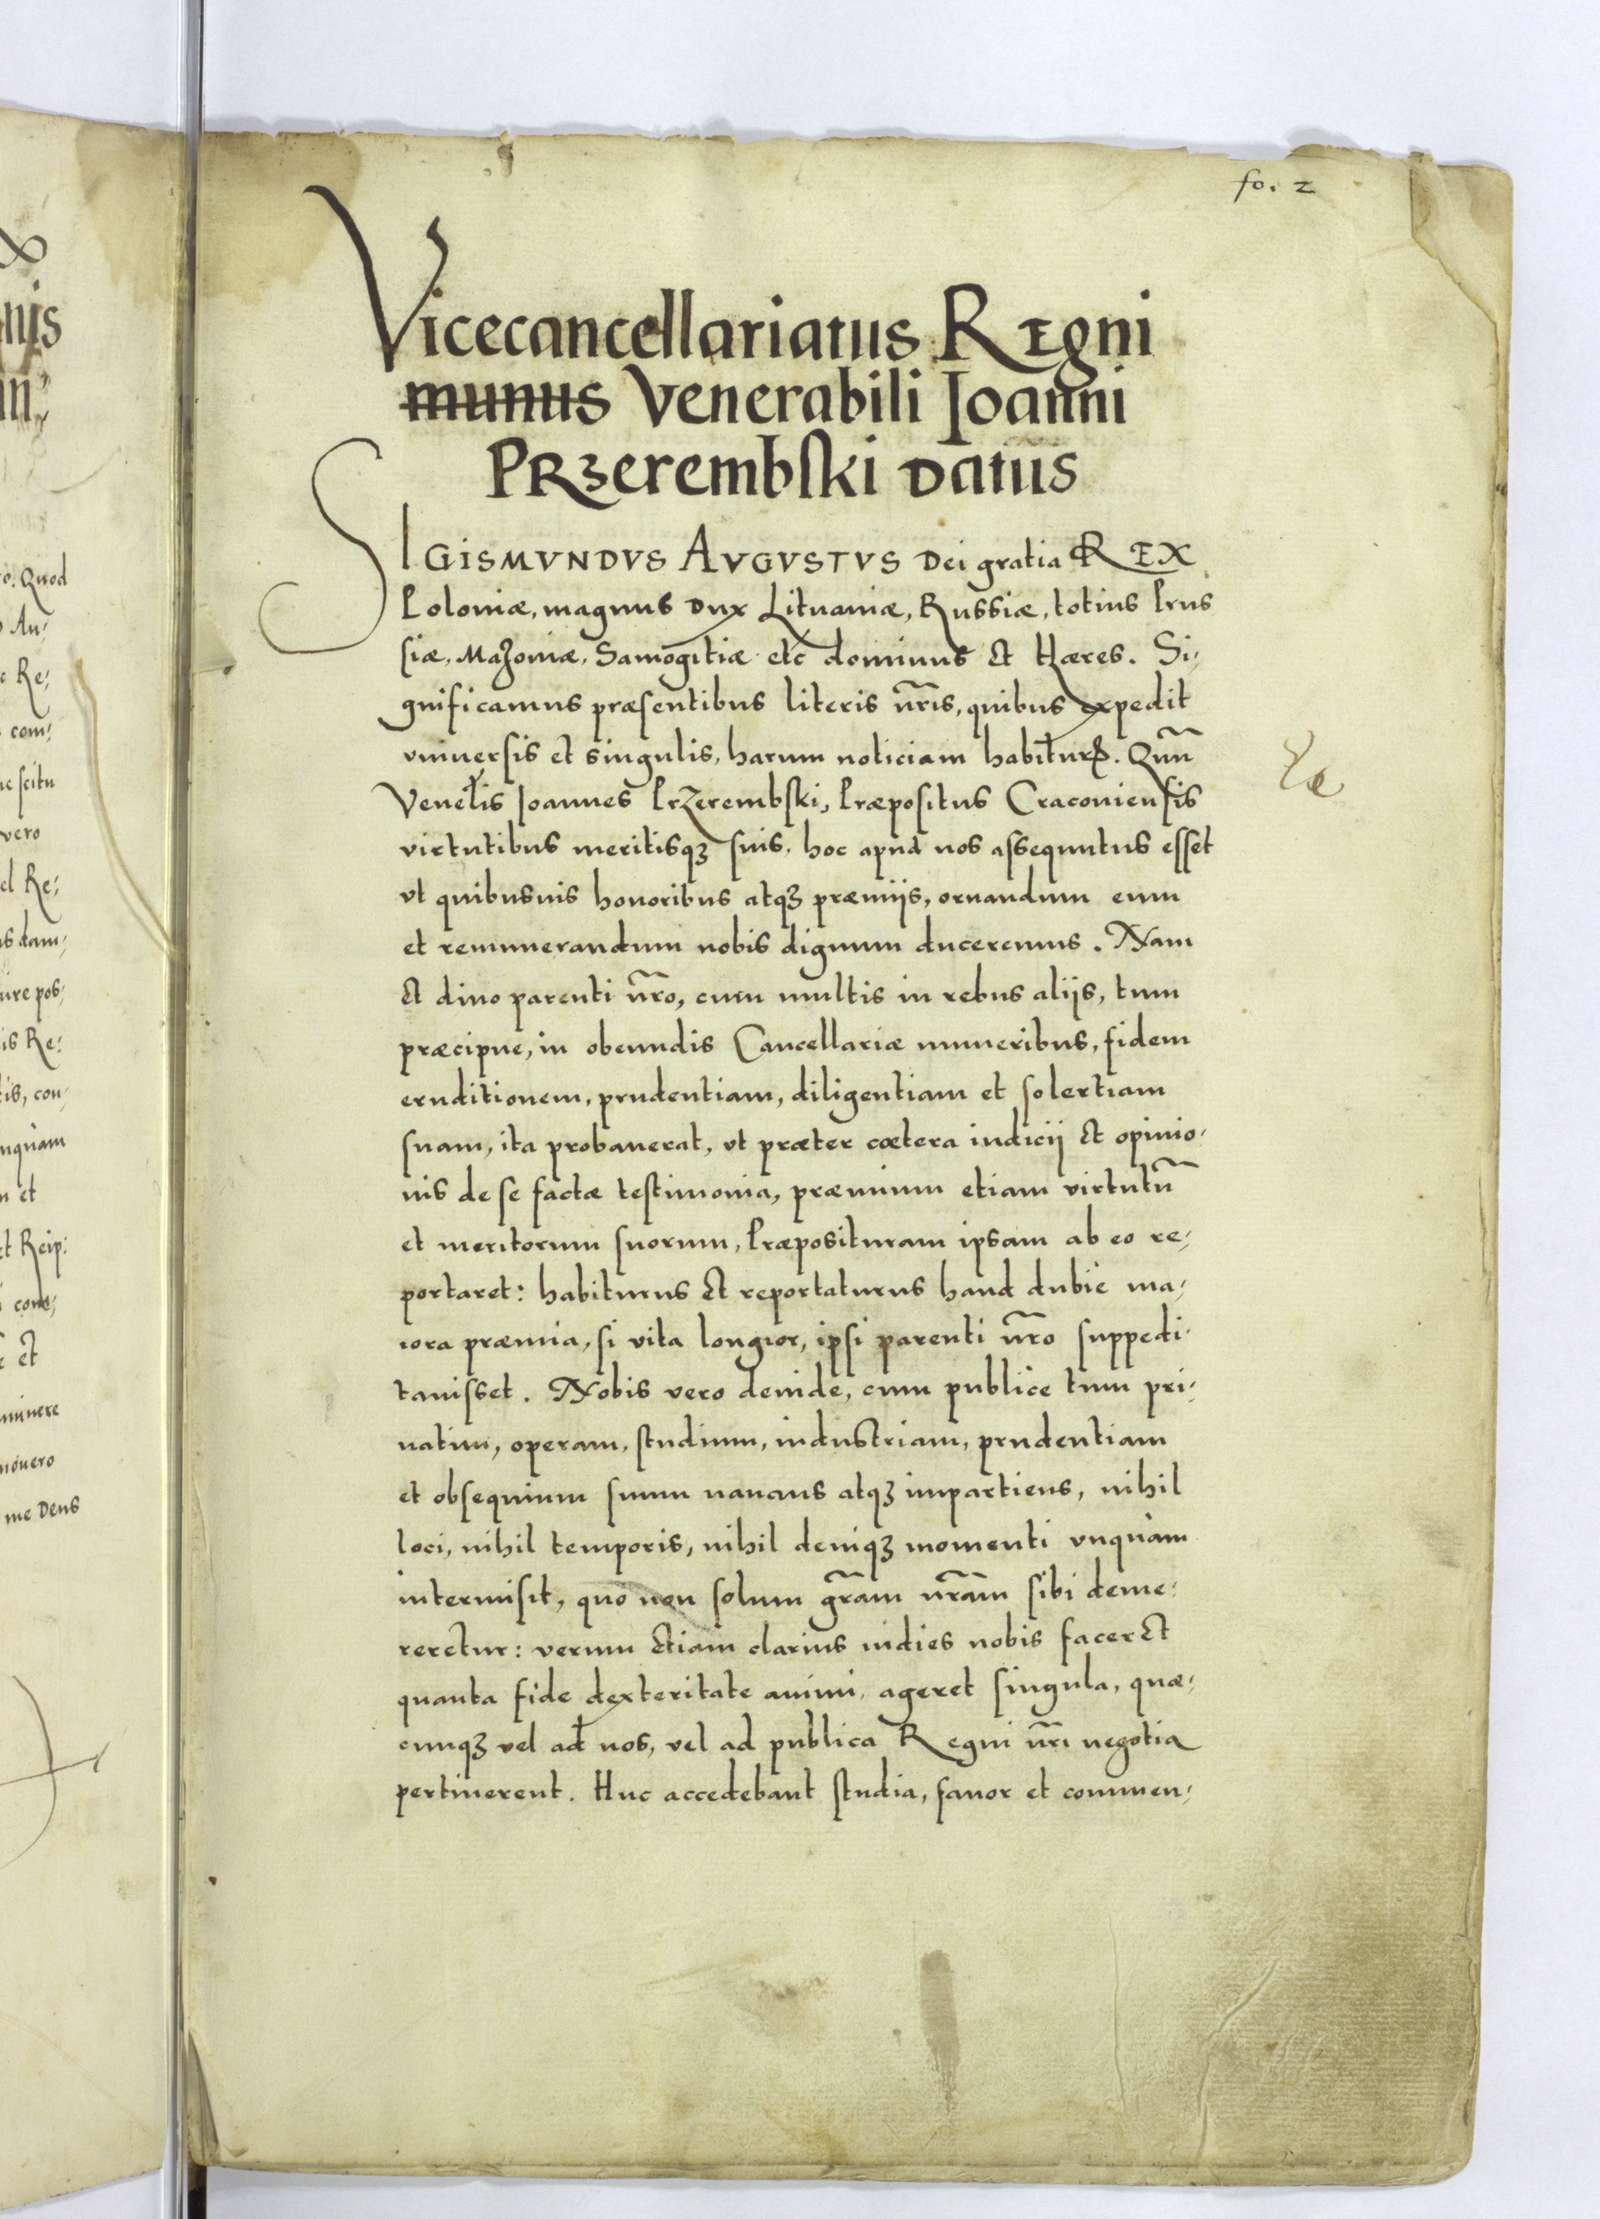 fo. 2
Vicecancellariatus Regni
munus Venerabili Ioanni
Przerembski datus
SIGISMVNDVS AVGVSTVS Dei gratia REX
Poloniæ, magnus Dux Lituaniæ, Russiæ, totius Prus
siæ, Mazoniæ, Samogitiæ etc dominus et Hæres. Si-
gnificamus præsentibus literis nr̃is, quibus expedit
vniuersis et singulis, harum noticiam habiturꝝ. Quũ
Venelis Ioannes Przerembski, Præpositus Cracouiensis
virtutibus meritisqꝫ suis, hoc apud nos assequutus esset
vt quibusuis honoribus atqꝫ præmijs, ornandum eum
et remunerandum nobis dignum duceremus. Nam
et diuo parenti nr̃o, cum multis in rebus alijs, tum
præcipue, in obeundis Cancellariæ muneribus, fidem
eruditionem, prudentiam, diligentiam et solertiam
suam, ita probauerat, vt præter cætera iudicij et opinio-
nis de se factæ testimonia, præmium etiam virtutũ
et meritorum suorum, Præposituram ipsam ab eo re-
portaret: habiturus et reportaturus haud dubiè ma-
iora præmia, si vita longior, ipsi parenti nr̃o suppedi-
tauisset. Nobis vero deinde, cum publice tum pri-
uatim, operam, studium, industriam, prudentiam
et obsequium suum nauans atqꝫ impartiens, nihil
loci, nihil temporis, nihil deniqꝫ momenti vnquàm
intermisit, quo non solum gr̃am nr̃am sibi deme-
reretur: verum etiam clarius indies nobis faceret
quanta fide dexteritate animi, ageret singula, quæ-
cunqꝫ vel ad nos, vel ad publica Regni nr̃i negotia
pertinerent. Huc accedebant studia, fauor et commen-